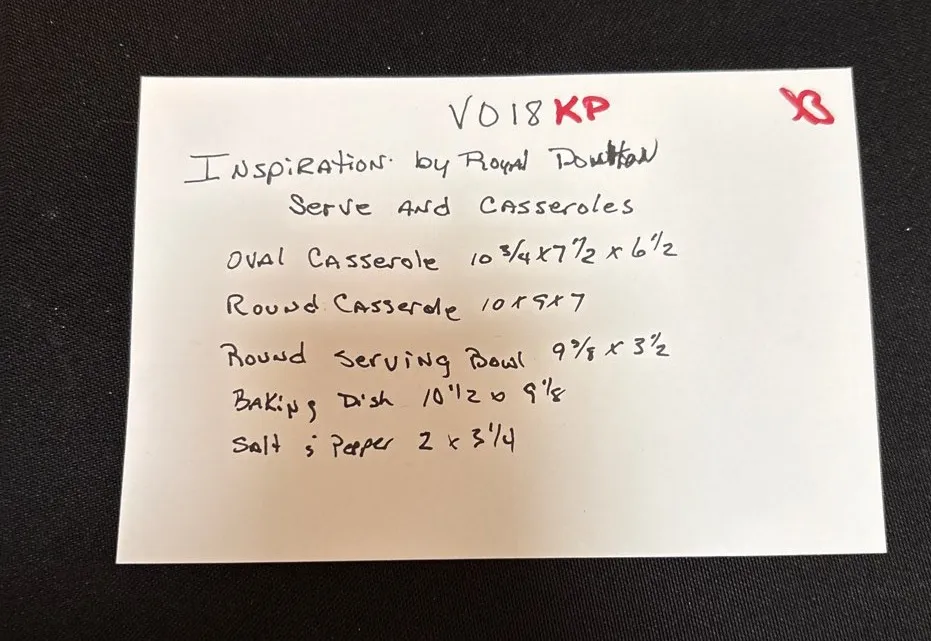 VO18 KP
Inspiration by Royal Doulton
Serve and Casseroles
Oval Casserole 10 3/4 x 7 1/2 x 6 1/2
Round Casserole 10 x 9 x 7
Round Serving Bowl 9 5/8 x 3 1/2
Baking Dish 10 1/2 x 9 1/8
Salt & Pepper 2 x 3 1/4